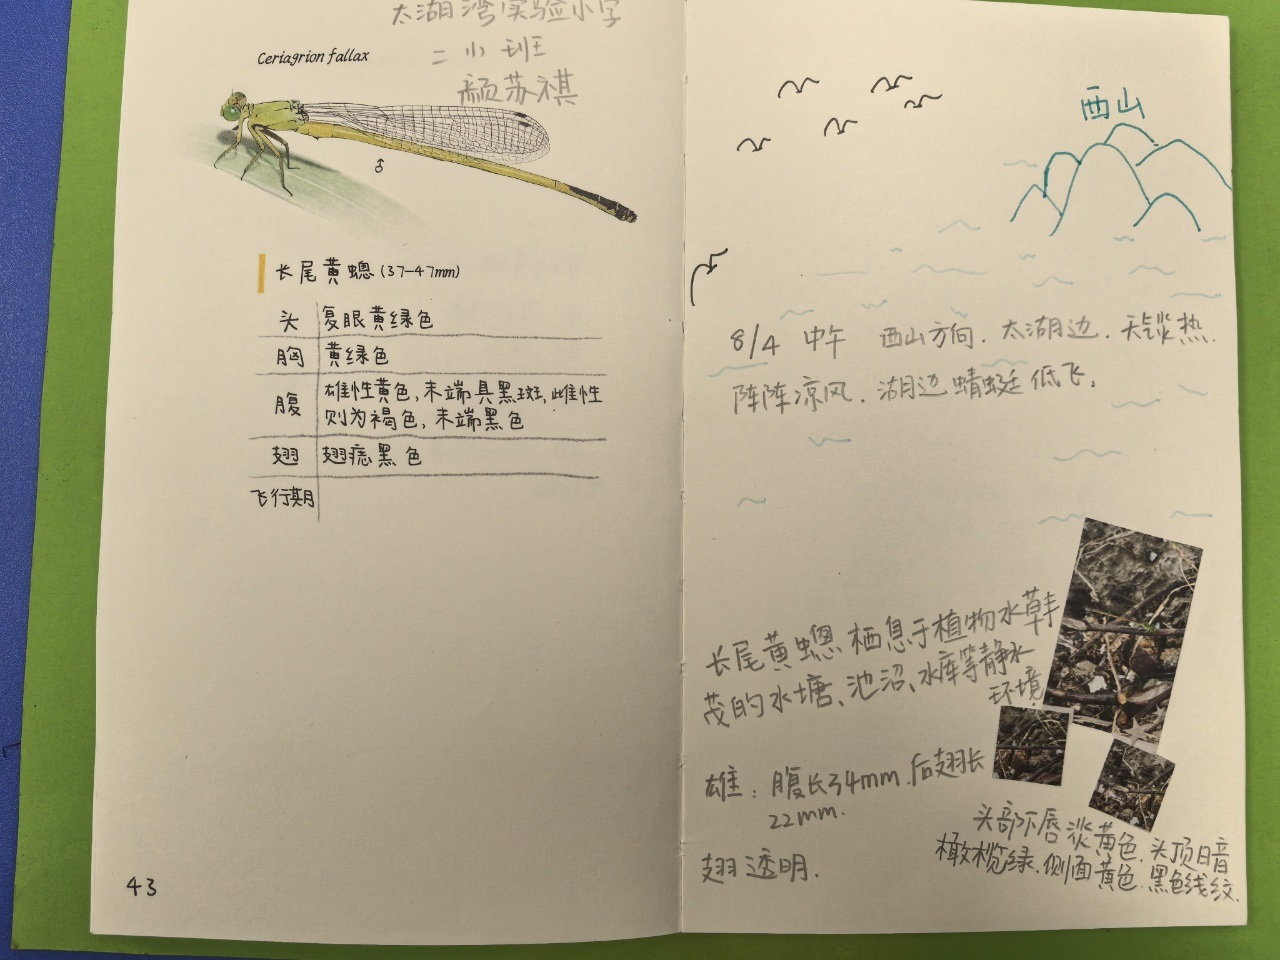 太湖湾实验小学
二小班
颜苏祺
Ceriagrion fallax
♂
长尾黄蟌(37-47mm)
头 复眼黄绿色
胸 黄绿色
腹 雄性黄色,末端具黑斑,雌性
则为褐色,末端黑色
翅 翅痣黑色
飞行期
43
西山
8/4 中午 西山方向.太湖边.天气炎热.
阵阵凉风.湖边蜻蜓低飞.
长尾黄蟌栖息于植物水草丰
茂的水塘、池沼、水库等静水
环境
雄:腹长34mm.后翅长
22mm.
翅透明.
头部下唇淡黄色.头顶暗
橄榄绿.侧面黄色.黑色线纹.